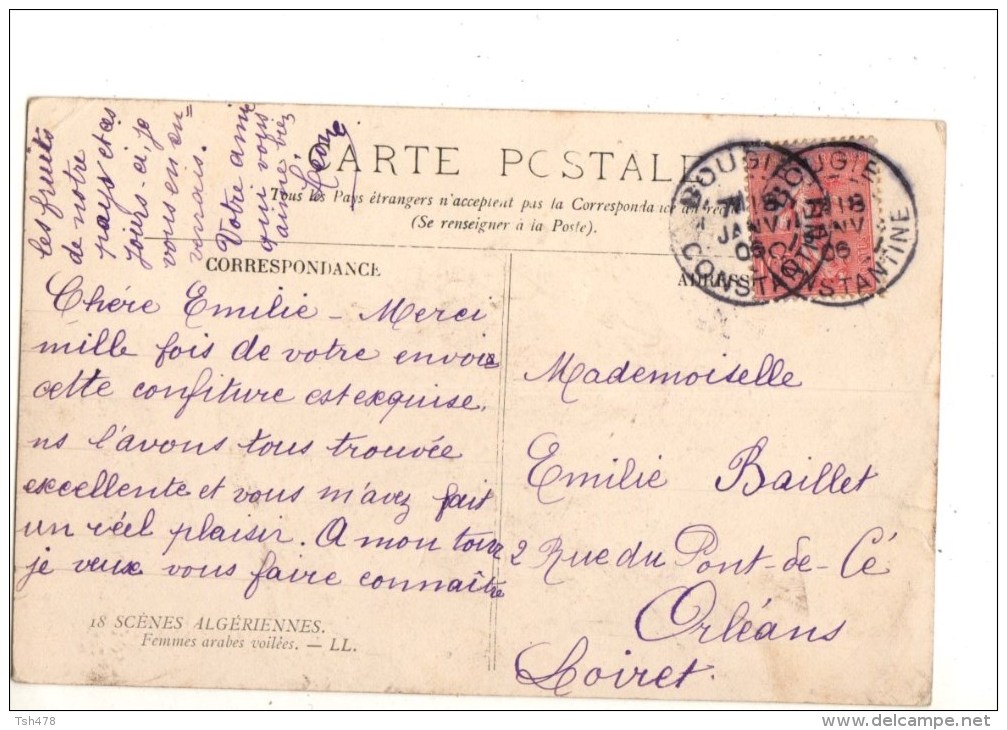 CARTE POSTALE
Tous les Pays étrangers n'acceptent pas la Correspondance au recto
(Se renseigner à la Poste).
CORRESPONDANCE
ADRESSE
BOUGIE
18
JANV
06
CONSTANTINE
BOUGIE
18
JANV
06
CONSTANTINE
Chére Emilie - Merci
mille fois de votre envoie
cette confiture est exquise,
ns l'avons tous trouvée
excellente et vous m'avez fait
un réel plaisir. A mon tour
je veux vous faire connaître
les fruits
de notre
pays et ces
jours-ci, je
vous en en=
verrais.
Votre amie
qui vous
aime bien
Mademoiselle
Emilie Baillet
2 Rue du Pont-de-Cé
Orléans
Loiret.
18 SCÈNES ALGÉRIENNES.
Femmes arabes voilées. — LL.
Tsh478
www.delcampe.net